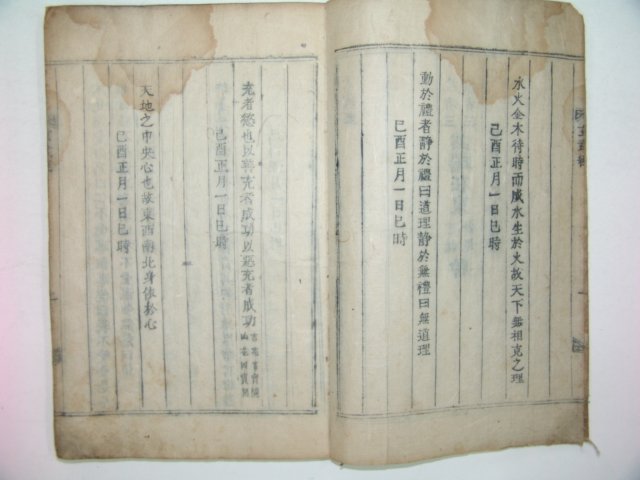 水火金木待時而成水生於火故天下無相克之理
己酉正月一日巳時
動於禮者靜於禮曰道理靜於無禮曰無道理
己酉正月一日巳時
充者慾也以善充者成功以惡充者成功
己酉正月一日巳時
天地之中央心也故東西南北身依於心
己酉正月一日巳時